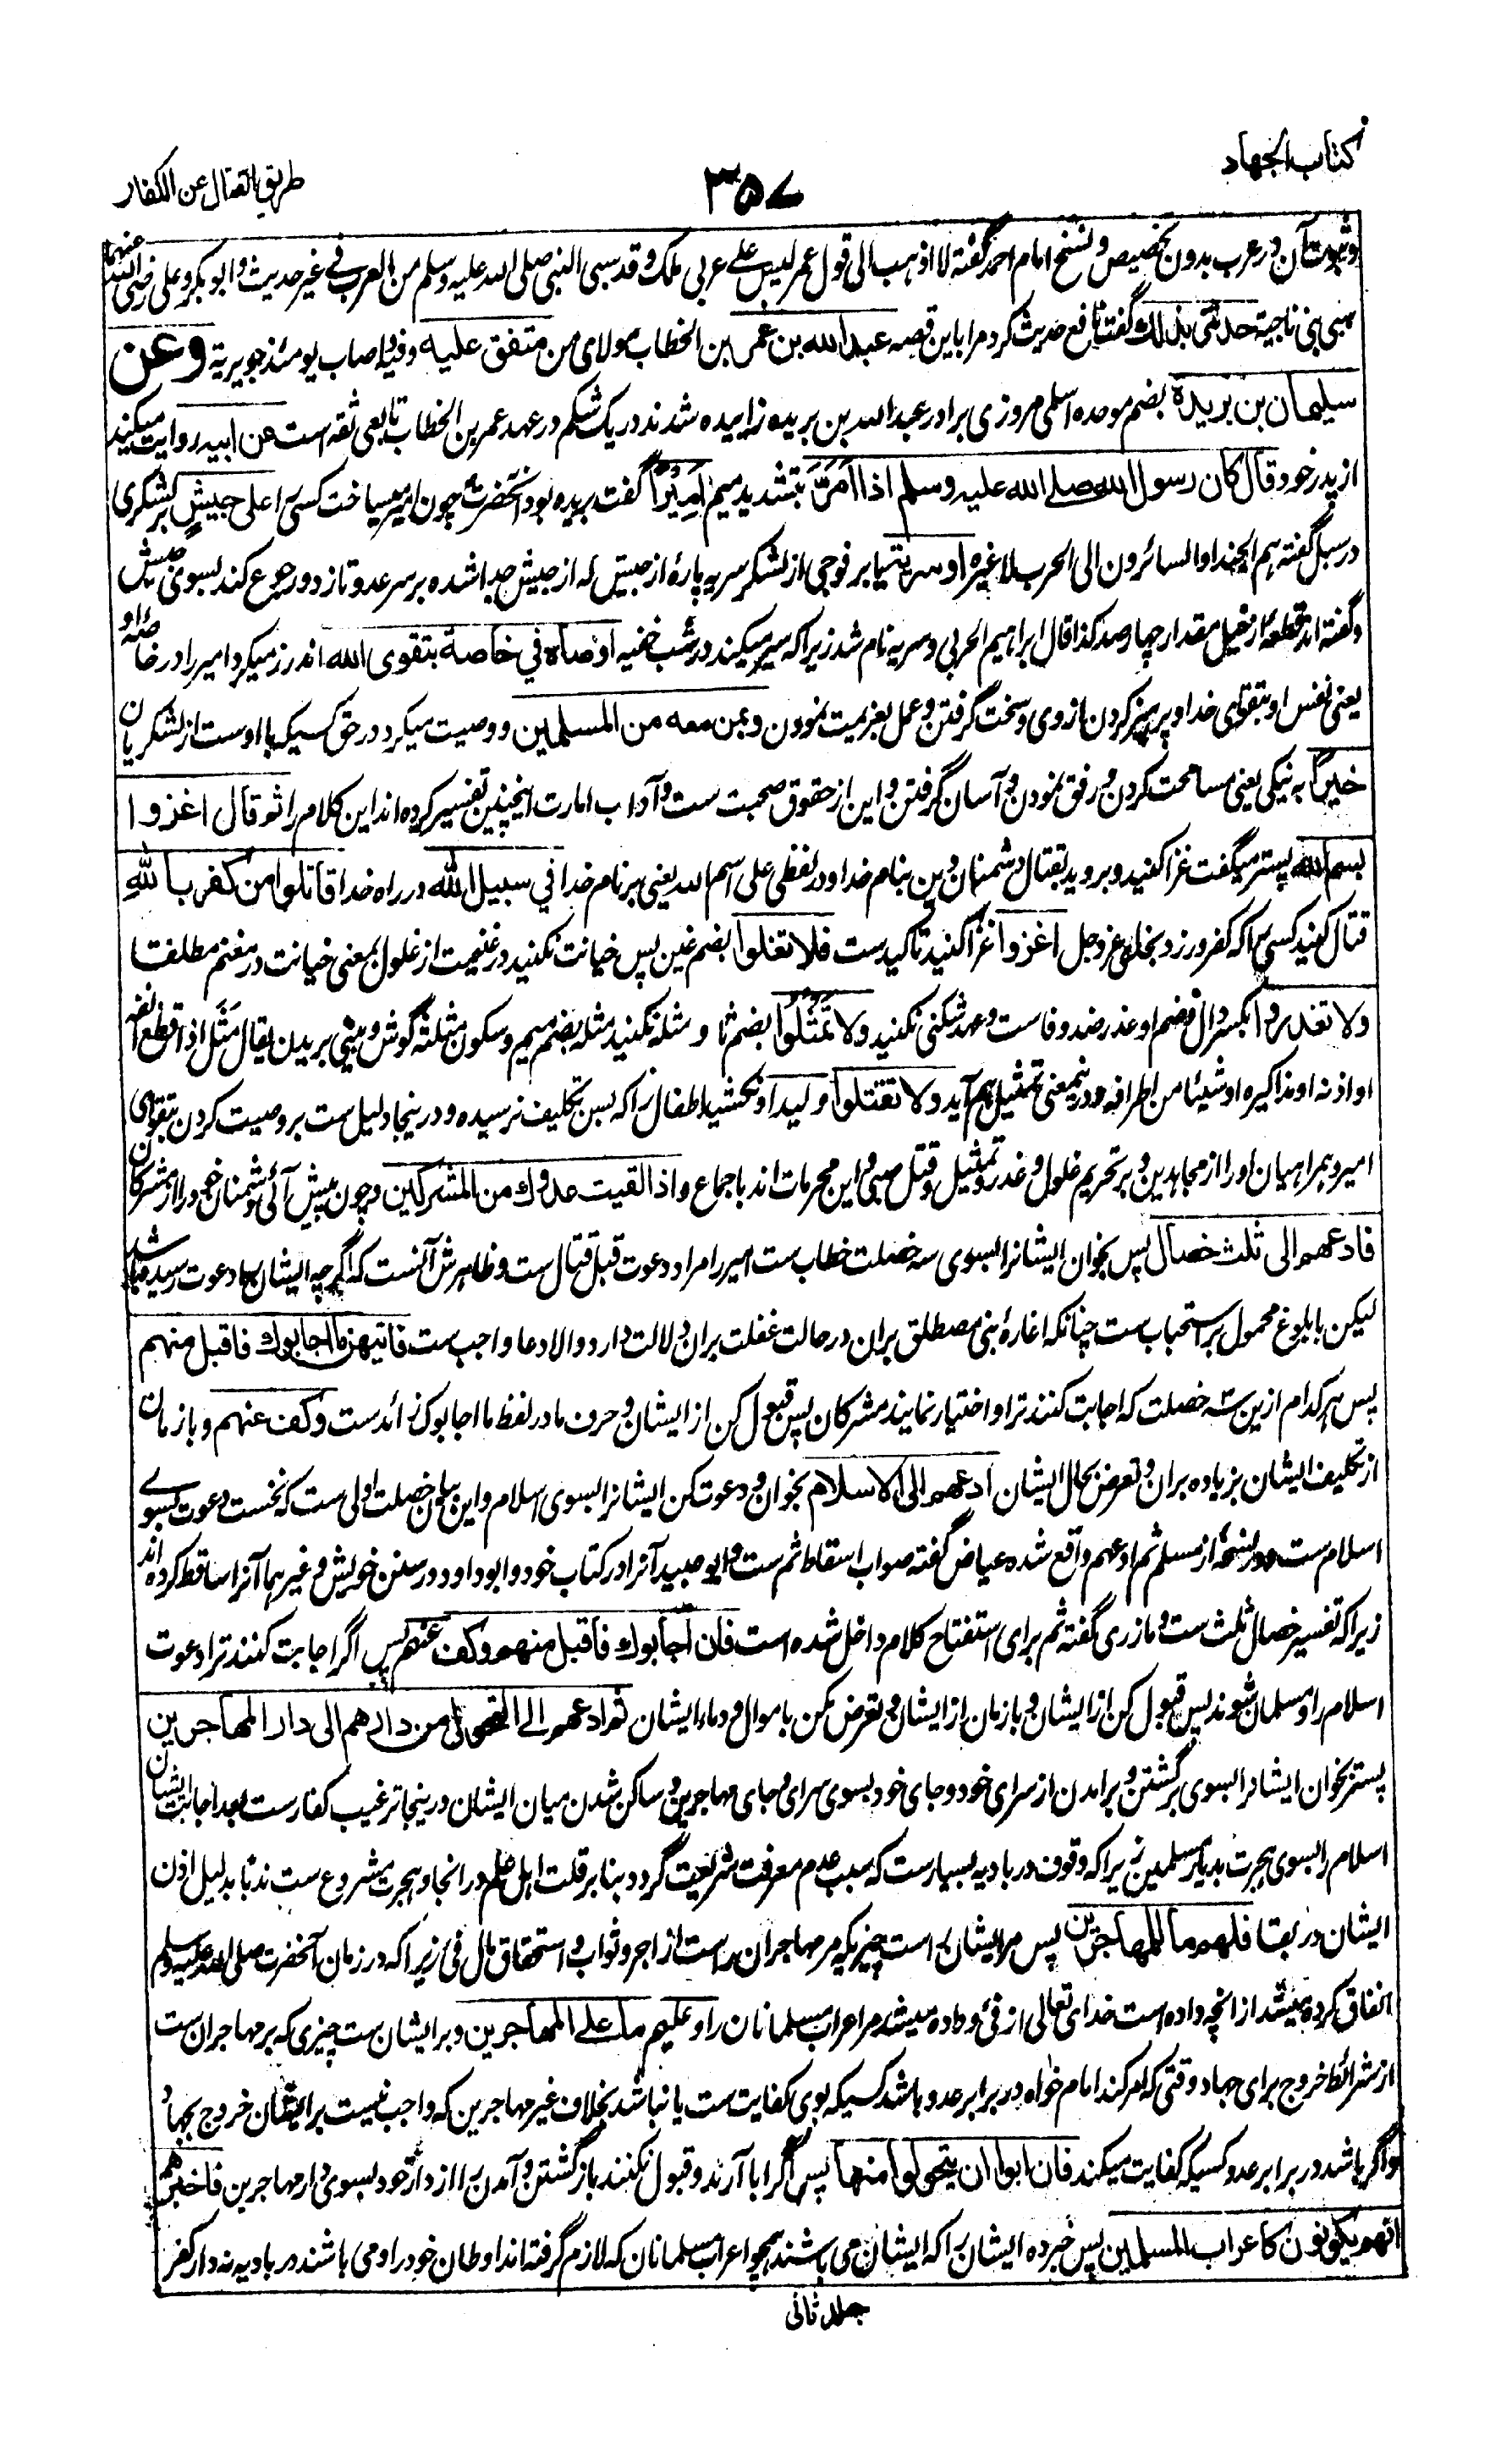 کتاب الجهاد
۳۵۷
طریق القتال عن الکفار
وثبوت آن در عرب بدون تخصیص ونسخ امام احمد گفته لا اذهب الی قول عمر لیس علے عربی ملک وقد سبی النبی صلی الله علیه وسلم من العرب فی غیر حدیث وابوبکر وعلی رضی الله عنهما
سبی بنی ناجیة حدثنی بذلك گفت نافع حدیث کرد مرا باین قصه عبد الله بن عمر بن الخطاب مولای من متفق علیه وفیه واصاب یومئذ جویریة وعن
سلیمان بن بریدة بضم موحده اسلمی مروزی برادر عبد الله بن بریده زاییده شدند در یک شکم در عهد عمر بن الخطاب تابعی ثقه است عن ابیه روایت میکند
از پدر خود قال كان رسول الله صلے الله علیه وسلم اذا أَمَّرَ بتشدید میم اَمِیْرًا گفت بریده بود آنحضرت چون امیر میساخت کسی را علی جیش بر لشکری
در سبل گفته هم الجند او السائرون الی الحرب لا غیره او سریة یا بر فوجی از لشکر سریه پارهٔ از جیش که از جیش جدا شده بر سر عدو تازد ورجوع کند بسوی جیش
وگفته اند قطعهٔ از خیل مقدار چهار صد کذا قال ابراهیم الحربی وسریه نام شد زیرا که سیر میکند در شب خفیه اوصاه في خاصة بتقوى الله اندرز میکرد امیر را در خاصهٔ او
یعنی نفس او بتقوای خدا وپرهیز کردن ازوی وسخت گرفتن وعمل بعزیمت نمودن وبمن معه من المسلمین ووصیت میکرد در حق کسیکه با اوست از لشکریان
خیرا به نیکی یعنی مسامحت کردن ورفق نمودن وآسان گرفتن واین از حقوق صحبت ست وآداب امارت اینچنین تفسیر کرده اند این کلام را ثم قال اغزوا
بسم الله پستر میگفت غزا کنید وبروید بقتال دشمنان دین بنام خدا ودر لفظی علی اسم الله یعنی بر نام خدا في سبیل الله در راه خدا قاتلوا من كفر بالله
قتال کنید کسی را که کفر ورزد بخدای عز وجل اغزوا غزا کنید تاکید ست فلا تغلوا بضم غین پس خیانت نکنید در غنیمت از غلول بمعنی خیانت در مغنم مطلقا
ولا تغدروا بکسر دال وضم او غدر ضد وفاست وعهد شکنی نکنید ولا تَمْثُلُوا بضم ثا ومثله نکنید مثله بضم میم وسکون مثلثه گوش وبینی بریدن یقال مَثَلَ اذا قطع انفه
او اذنه او مذاکیره او شیئا من اطرافه ودرینمعنی تمثیل هم آید ولا تقتلوا ولیدا ونکشید اطفال را که بسن تکلیف نرسیده ودرینجا دلیل ست بر وصیت کردن بتقوای
امیر وهمراهیان او را از مجاهدین وبر تحریم غلول وغدر وتمثیل وقتل صبی واین محرمات اند باجماع واذا لقیت عدوك من المشركین وچون پیش آئی دشمنان خود را از مشرکان
فادعهم الی ثلث خصال پس بخوان ایشانرا بسوی سه خصلت خطاب ست امیر را مراد دعوت قبل قتال ست وظاهرش آنست که اگرچه ایشان را دعوت رسیده باشد
لیکن با بلوغ محمول بر استحباب ست چنانکه اغارهٔ بنی مصطلق بران در حالت غفلت بران دلالت دارد والا دعا واجب ست فایتهن ما اجابوك فاقبل منهم
پس هر کدام ازین سه خصلت که اجابت کنند ترا واختیار نمایند مشرکان پس قبول کن از ایشان وحرف ما در لفظ ما اجابوک زائد ست وكف عنهم وباز مان
از تکلیف ایشان بزیاده بران وتعرض بحال ایشان ادعهم الی الاسلام بخوان ودعوت کن ایشانرا بسوی اسلام واین بیان خصلت اولی ست که نخست دعوت بسوے
اسلام ست ودر نسخهٔ از مسلم ثم ادعهم واقع شده عیاض گفته صواب اسقاط ثم ست وابو عبید آنرا در کتاب خود وابوداود در سنن خویش وغیرهما آنرا ساقط کرده اند
زیرا که تفسیر خصال ثلث ست ومازری گفته ثم برای استفتاح کلام داخل شده است فان اجابوك فاقبل منهم وكف عنهم پس اگر اجابت کنند ترا دعوت
اسلام را ومسلمان شوند پس قبول کن از ایشان وباز مان از ایشان وتعرض مکن باموال ودماء ایشان ثم ادعهم الے التحول من دارهم الی دار المهاجرین
پستر بخوان ایشانرا بسوی برگشتن وبرامدن از سرای خود وجای خود بسوی سرای وجای مهاجرین وساکن شدن میان ایشان درینجا ترغیب کفار ست بعد اجابت ایشان
اسلام را بسوی هجرت بدیار مسلمین زیرا که وقوف در بادیه بسیار ست که سبب عدم معرفت شریعت گردد بنا بر قلت اهل علم در انجا وهجرت مشروع ست ندبا بدلیل اذن
ایشان در بقا فلهم ما للمهاجرین پس مر ایشان راست چیزیکه مر مهاجران راست از اجر وثواب واستحقاق مال فی زیرا که در زمان آنحضرت صلی الله علیه وسلم
انفاق کرده میشد از انچه داده است خدای تعالی از فئ وداده میشد مر اعراب مسلمانان را وعلیهم ما علے المهاجرین وبر ایشان ست چیزی که بر مهاجران ست
از شرائط خروج برای جهاد وقتی که امر کند امام خواه در برابر عدو باشد کسیکه بوی کفایت ست یا نباشد بخلاف غیر مهاجرین که واجب نیست بر ایشان خروج بجهاد
واگر باشد در برابر عدو کسیکه کفایت میکند فان ابوا ان یتحولوا منها پس اگر ابا آرند وقبول نکنند باز گشتن وآمدن را از دار خود بسوی دار مهاجرین فاخبرهم
انهم یكونون كاعراب المسلمین پس خبر ده ایشان را که ایشان می باشند همچو اعراب مسلمانان که لازم گرفته اند اوطان خود را ومی باشند در بادیه نه دار کفر
جلد ثانی